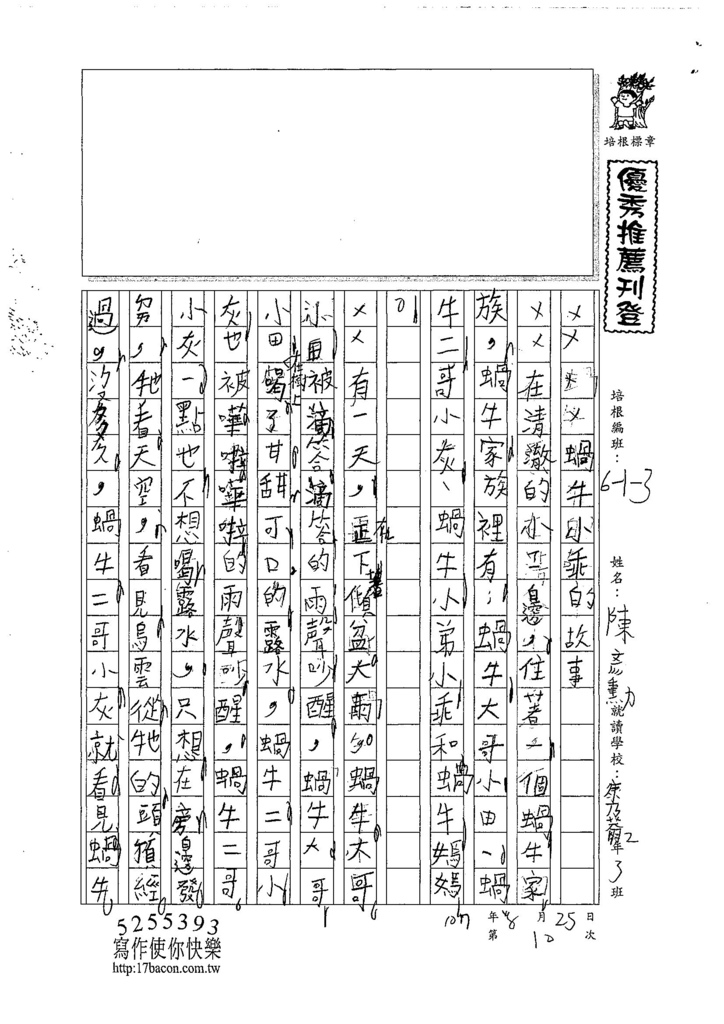 培根標章
優秀推薦刊登
培根編班：6-1-3
姓名：陳彥勳
就讀學校：
班
107年8月25日
第10次
蝸牛小乖的故事
在清澈的水溝邊，住著一個蝸牛家
族，蝸牛家族裡有：蝸牛大哥小田、蝸
牛二哥小灰、蝸牛小弟小乖和蝸牛媽媽
有一天，正在下著傾盆大雨，蝸牛大哥
小田被滴答滴答的雨聲吵醒，蝸牛大哥
小田喝了樹上甘甜可口的露水，蝸牛二哥小
灰也被嘩啦嘩啦的雨聲吵醒，蝸牛二哥
小灰一點也不想喝露水，只想在旁邊發
呆，牠看天空，看見烏雲從牠的頭頂經
過，沒多久，蝸牛二哥小灰就看見蝸牛
5255393
寫作使你快樂
http:17bacon.com.tw